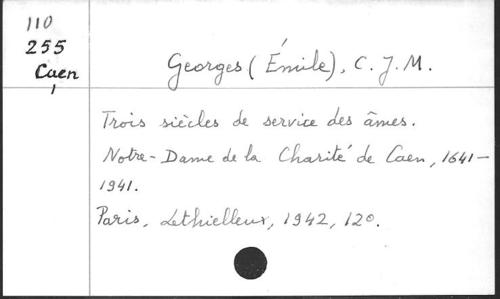 110
255
Caen
Georges (Émile), C. J. M.
Trois siècles de service des âmes.
Notre-Dame de la Charité de Caen, 1641-
1941.
Paris, Lethielleux, 1942, 12º.